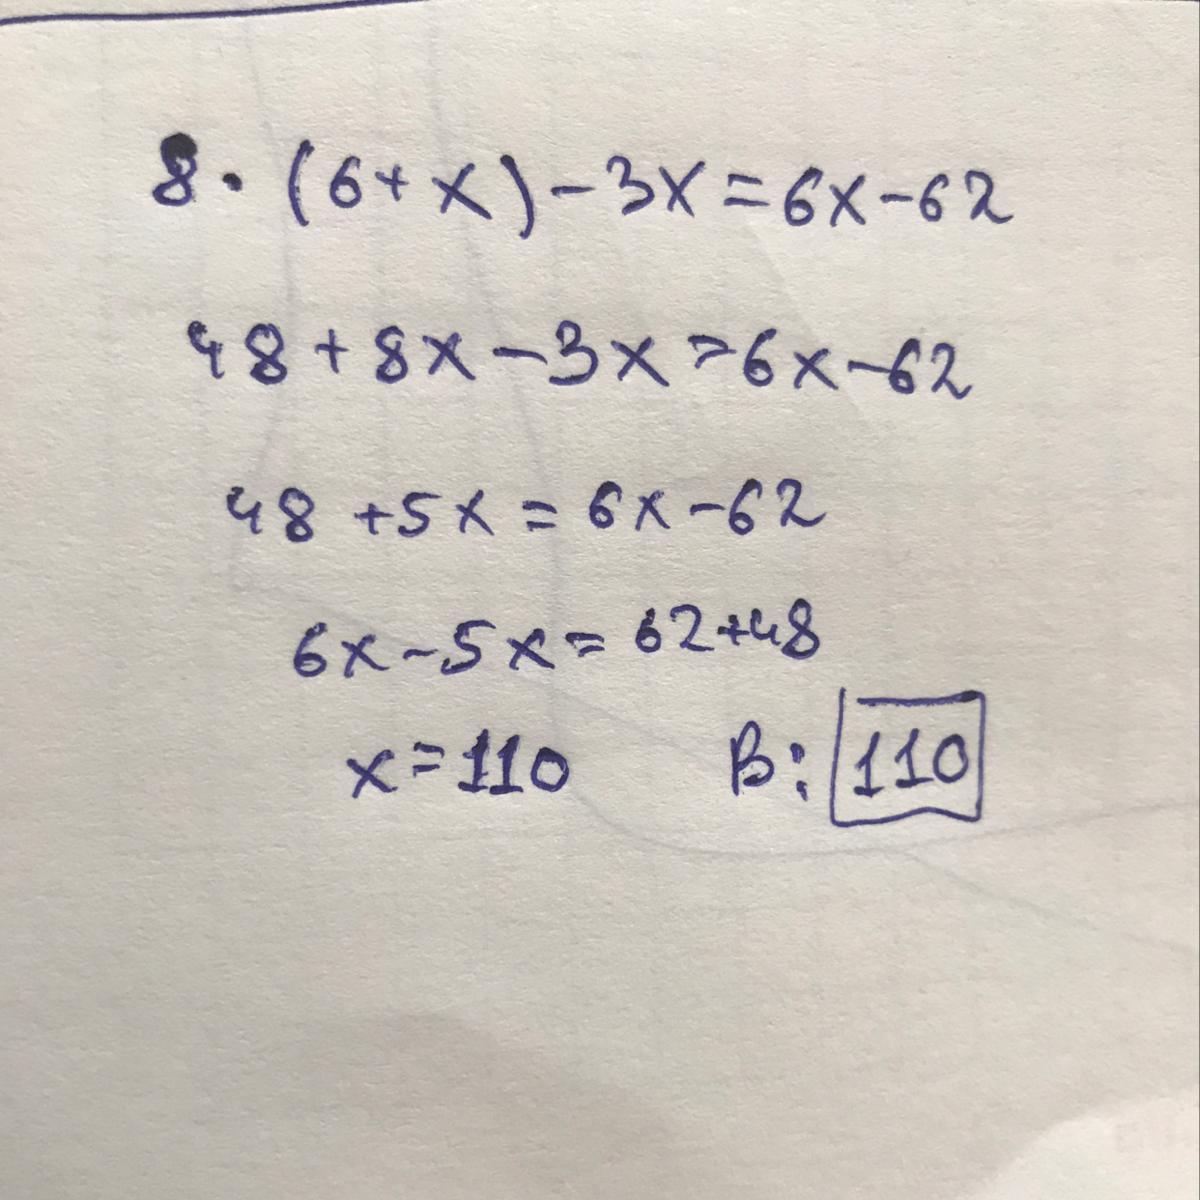 8 · (6 + x) - 3x = 6x - 62
48 + 8x - 3x = 6x - 62
48 + 5x = 6x - 62
6x - 5x = 62 + 48
x = 110 B: 110